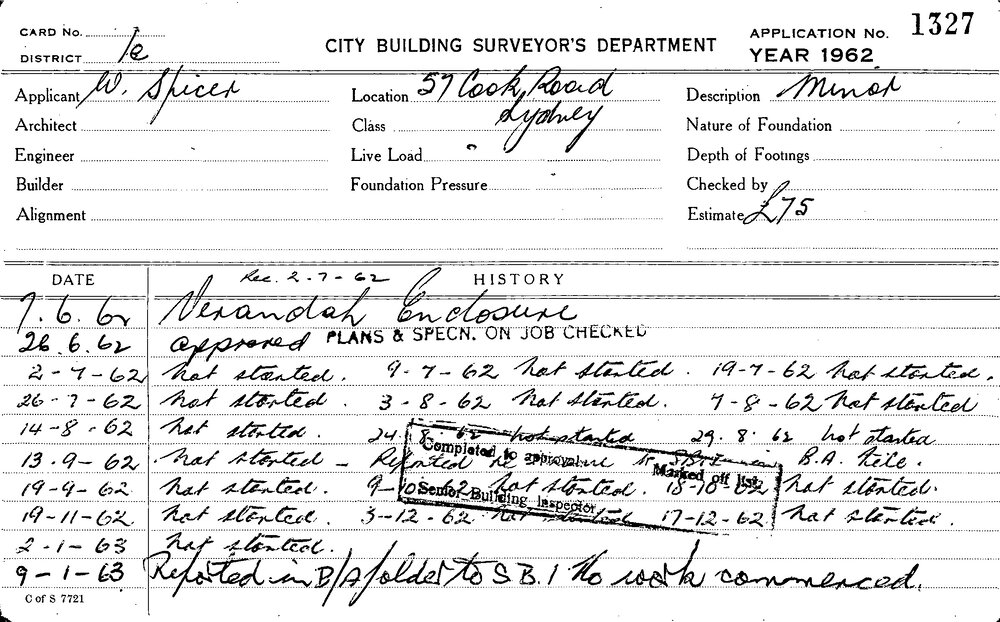 CARD No.
DISTRICT 1e
CITY BUILDING SURVEYOR'S DEPARTMENT
APPLICATION No. 1327
YEAR 1962
Applicant W. Spicer Location 57 Cook Road Description Minor
Architect Class Sydney Nature of Foundation
Engineer Live Load Depth of Footings
Builder Foundation Pressure Checked by
Alignment Estimate £75
DATE Rec. 2-7-62 HISTORY
7.6.62 Verandah Enclosure
26.6.62 approved PLANS & SPECN. ON JOB CHECKED
2-7-62 Not started. 9-7-62 Not started. 19-7-62 Not started.
26-7-62 Not started. 3-8-62 Not started. 7-8-62 Not started
14-8-62 Not started. 24.8.62 not started 29.8.62 not started
13.9-62 Not started - Reported re B.A. File.
Completed to approval. Marked off list
Senior Building Inspector
19-9-62 Not started. 9-10-62 Not started. 18-10-62 Not started.
19-11-62 Not started. 3-12-62 Not started 17-12-62 Not started.
2-1-63 Not started.
9-1-63 Reported in B/A folder to S.B.I No work commenced.
C of S 7721